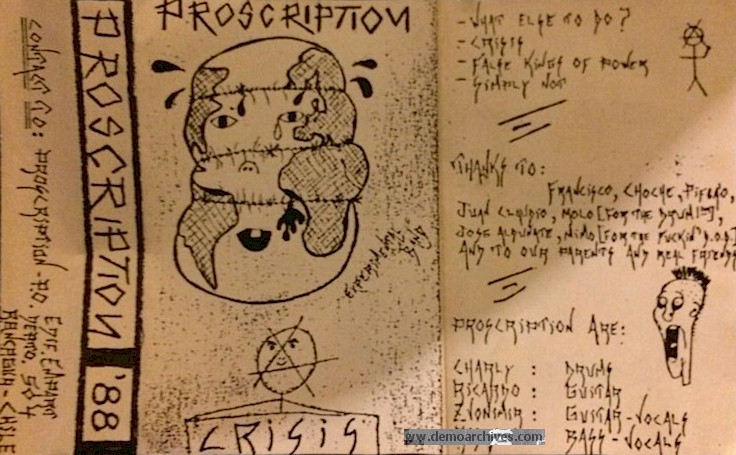 CONTACT TO: PROSCRIPTION P.O.
DEPTO. 504
RANCAGUA - CHILE
PROSCRIPTION '88
PROSCRIPTION
EXPERIMENTAL
BAND
CRISIS
- WHAT ELSE TO DO?
- CRISIS
- FALSE KINGS OF POWER
- SIMPLY NOT
THANKS TO:
FRANCISCO, CHOCHE,
JUAN CLAUDIO, MOLO [FOR THE DRUM!!],
JOSE ALDUNATE, NINO [FOR THE FUCKIN'
AND TO OUR PARENTS AND REAL FRIENDS
PROSCRIPTION ARE:
CHARLY : DRUMS
RICARDO : GUITAR
ZVONIMIR : GUITAR - VOCALS
BASS - VOCALS
www.demoarchives.com